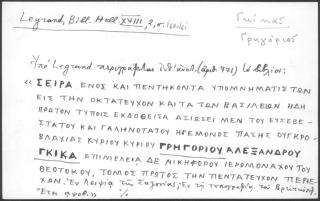 Legrand, Bibl. Hell. XVIII, 2, σ.
Γκίκας
Γρηγόριος
Ὑπὸ Legrand περιγράφεται ὑπ' ἀριθ. (ἀριθ. 771) τὸ βιβλίον:
« ΣΕΙΡΑ ΕΝΟΣ ΚΑΙ ΠΕΝΤΗΚΟΝΤΑ ΥΠΟΜΝΗΜΑΤΙΣΤΩΝ
ΕΙΣ ΤΗΝ ΟΚΤΑΤΕΥΧΟΝ ΚΑΙ ΤΑ ΤΩΝ ΒΑΣΙΛΕΙΩΝ ΗΔΗ
ΠΡΩΤΟΝ ΤΥΠΟΙΣ ΕΚΔΟΘΕΙΣΑ ΑΞΙΩΣΕΙ ΜΕΝ ΤΟΥ ΕΥΣΕΒΕ-
ΣΤΑΤΟΥ ΚΑΙ ΓΑΛΗΝΟΤΑΤΟΥ ΗΓΕΜΟΝΟΣ ΠΑΣΗΣ ΟΥΓΚΡΟ-
ΒΛΑΧΙΑΣ ΚΥΡΙΟΥ ΚΥΡΙΟΥ ΓΡΗΓΟΡΙΟΥ ΑΛΕΞΑΝΔΡΟΥ
ΓΚΙΚΑ ΕΠΙΜΕΛΕΙΑ ΔΕ ΝΙΚΗΦΟΡΟΥ ΙΕΡΟΜΟΝΑΧΟΥ ΤΟΥ
ΘΕΟΤΟΚΟΥ, ΤΟΜΟΣ ΠΡΩΤΟΣ ΤΗΝ ΠΕΝΤΑΤΕΥΧΟΝ ΠΕΡΙΕ-
ΧΩΝ. Ἐν Λειψίᾳ τῆς Σαξονίας, Ἐν τῇ τυπογραφίᾳ τοῦ Βρεϊτκόπφ.
Ἔτει αψοβ.» ./.